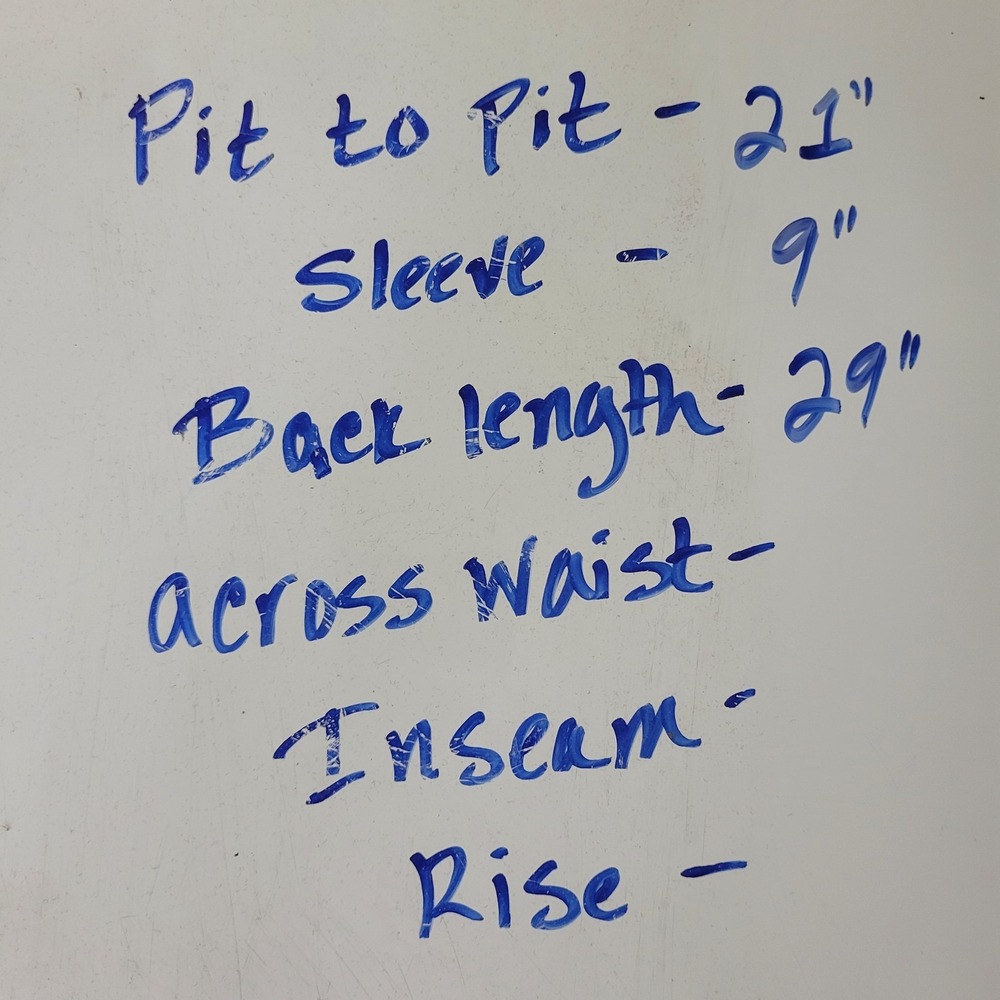 Pit to Pit - 21"
Sleeve - 9"
Back length - 29"
across Waist -
Inseam -
Rise -